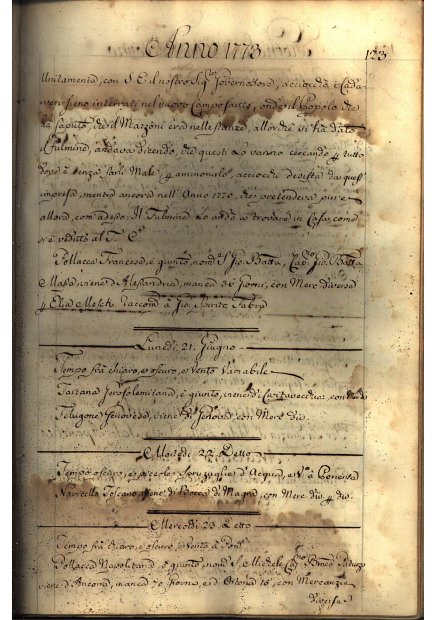 Anno 1773
123
Unitamente, con S. E. il nostro Sig.re Governatore, acciocchè i Cada,
veri sieno interrati nel nuovo Campo santo, onde il Popolo che
ha saputo, che il Mazzoni era nelle stanze, allorchè vi hà dato
il fulmine, andava dicendo, che questi Lo vanno cercando p tutto
dove è senza farli Male, p ammonirlo, acciochè desista da quest
impresa, mentre ancora nell' Anno 1770, che pretendeva pure
allora, com' adesso Il Fulmine Lo andò a trovare in Casa, come
s'è veduto al T.
Pollacca Francese, è giunto, nom.o S. Gio: Batta, Cap.o Gio: Batta
viene d'Alesandria, manca 36 Giorni, con Merc. diverse
p Elia Racom. a Gio. Spirito Fabre
Lunedì 21. Giugno
Tempo frà chiaro, e oscuro, e Vento Variabile
Tartana Gerosolimitana, è giunto, viene di Civitavecchia, con
Felugone Genovese, viene di Genova con Merc. div.
Martedì 22 Detto
Tempo oscuro, e piccole Spruzzaglie d'Acqua, e V.o à Ponente
Navicello Toscano, viene di Bocca di Magra, con Merc. div. p div.
Mercoldì 23 Detto
Tempo frà chiaro, e oscuro, e Vento à Pon.te
Pollacca Napolitana, è giunto, nom.o S. Michele Cap.o
viene d'Ancona, manca 70 Giorni, e d'Ortona 15, con Mercanzie
diverse